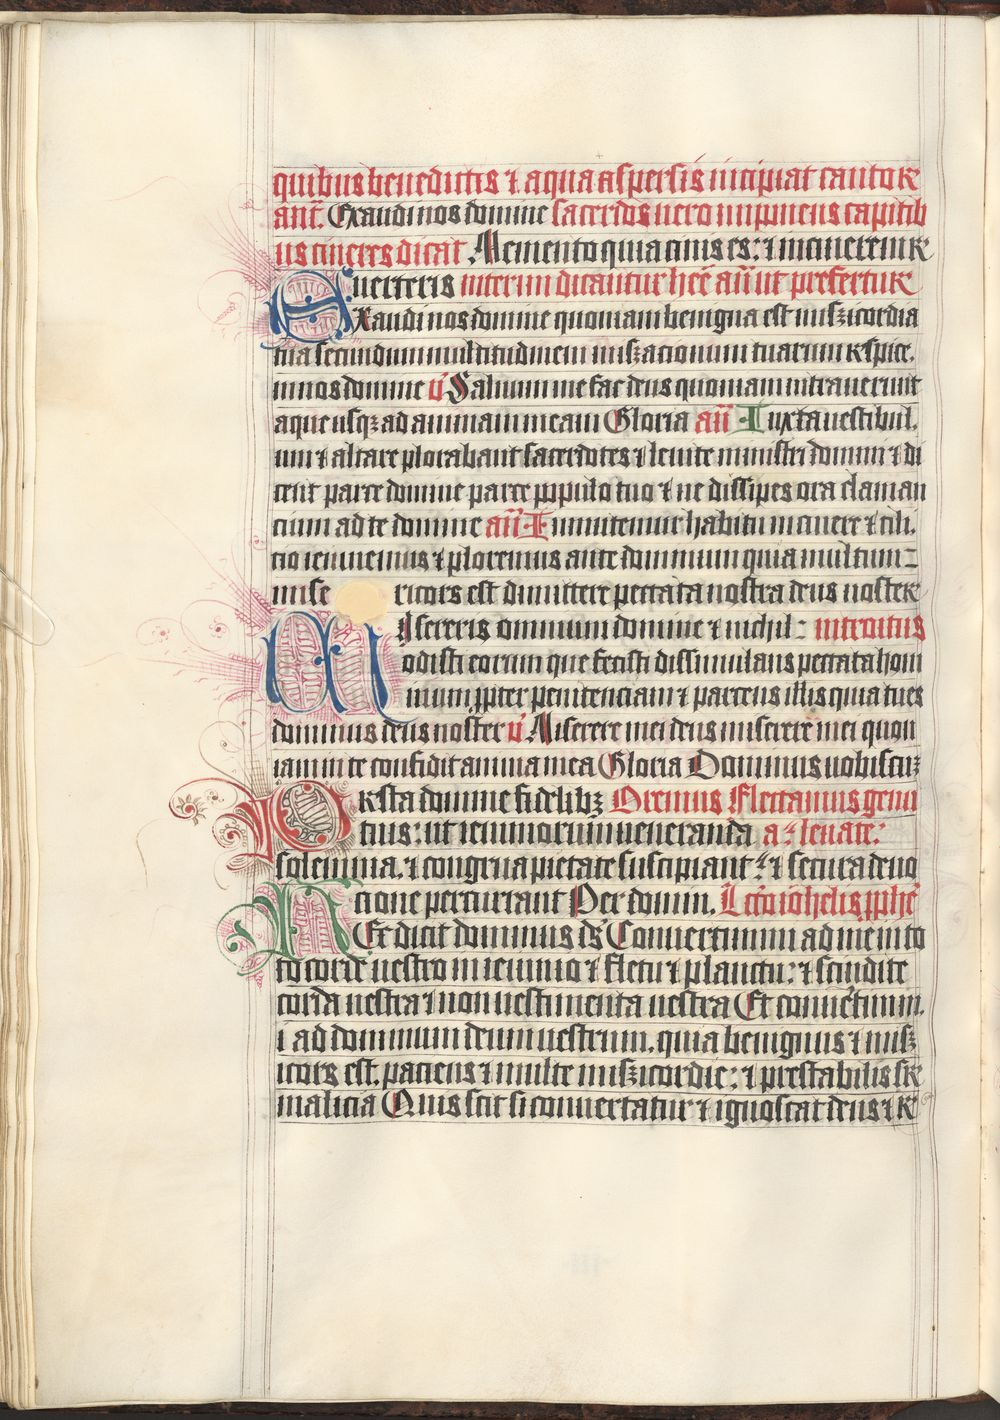 quibus benedictis ⁊ aqua aspersis incipiat cantor
ant̄. Exaudi nos domine sacerdos uero inponens capitib
us cineres dicat Memento quia cinis es: ⁊ in cinerem r
uerteris interim dicantur hec̄ an̄ ut prefertur
Exaudi nos domine quoniam benigna est misꝫicordia
tua secundum multitudinem misꝫacionum tuarum respice.
in nos domine v̄ Saluum me fac deus quoniam intrauerunt
aque usqꝫ ad animam meam Gloria an̄ Iuxta uestibul.
um ⁊ altare plorabant sacerdotes ⁊ leuite ministri domini ⁊ di
cent parce domine parce populo tuo ⁊ ne dissipes ora claman
cium ad te domine an̄ Inmutemur habitu in cinere ⁊ cili.
cio ieiunemus ⁊ ploremus ante dominum quia multum
mise ricors est dimittere peccata nostra deus noster
Misereris omnium domine ⁊ nichil: introitus
odisti eorum que fecisti dissimulans peccata homi
num ꝓpter penitenciam ⁊ parcens illis quia tu es
dominus deus noster v̄ Miserere mei deus miserere mei quon
iam in te confidit anima mea Gloria Dominus uobiscuꝫ
Presta domine fidelibꝫ Oremus Flectamus genu
tuis: ut ieiuniorum ueneranda a: leuate:
solemnia. ⁊ congrua pietate suscipiant: ⁊ secura deuo
cione percurrant Per domin. Lcc̄o iohelis ꝓphē
Et dicit dominus ds̄ Conuertimini ad me in to
to corde uestro in ieiunio ⁊ fletu ⁊ planctu: ⁊ scindite
corda uestra ⁊ non uestimenta uestra Et conūtimin.
i ad dominum deum uestrum. quia benignus ⁊ misꝫ
icors est. paciens ⁊ multe misꝫicordie: ⁊ prestabilis sr
malicia Quis scit si conuertatur ⁊ ignoscat deus ⁊ r